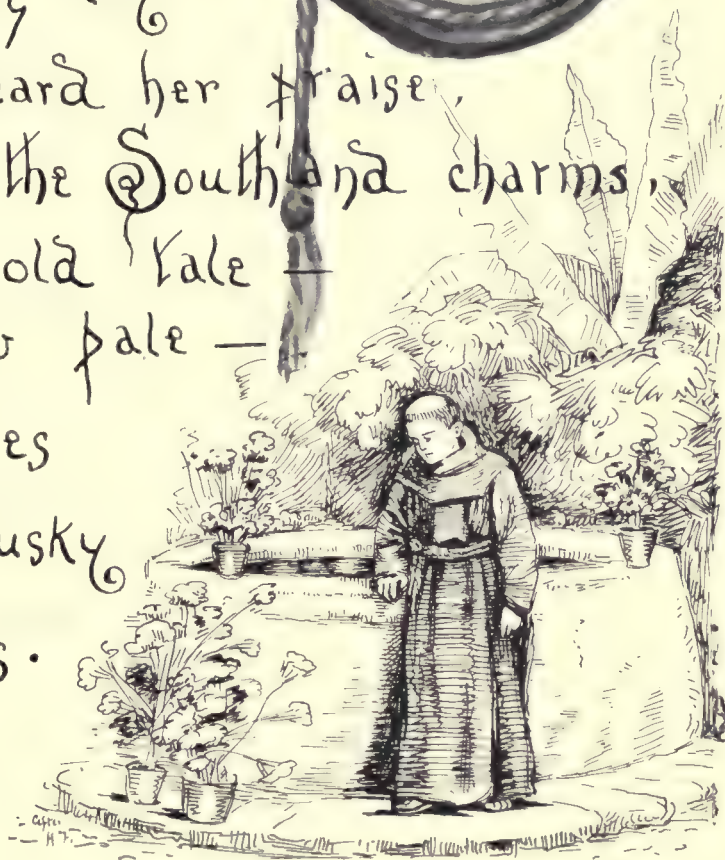 her praise,
the Southland charms,
old tale —
pale —
es
usky
s.